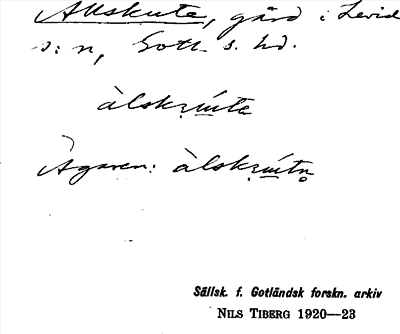 Allskute, gård i Levide
s:n, Gotl. s. hd.
àlskm̨̀íta
Ägaren:
Sällsk. f. Gotländsk forskn. arkiv
NILS TIBERG 1920—23